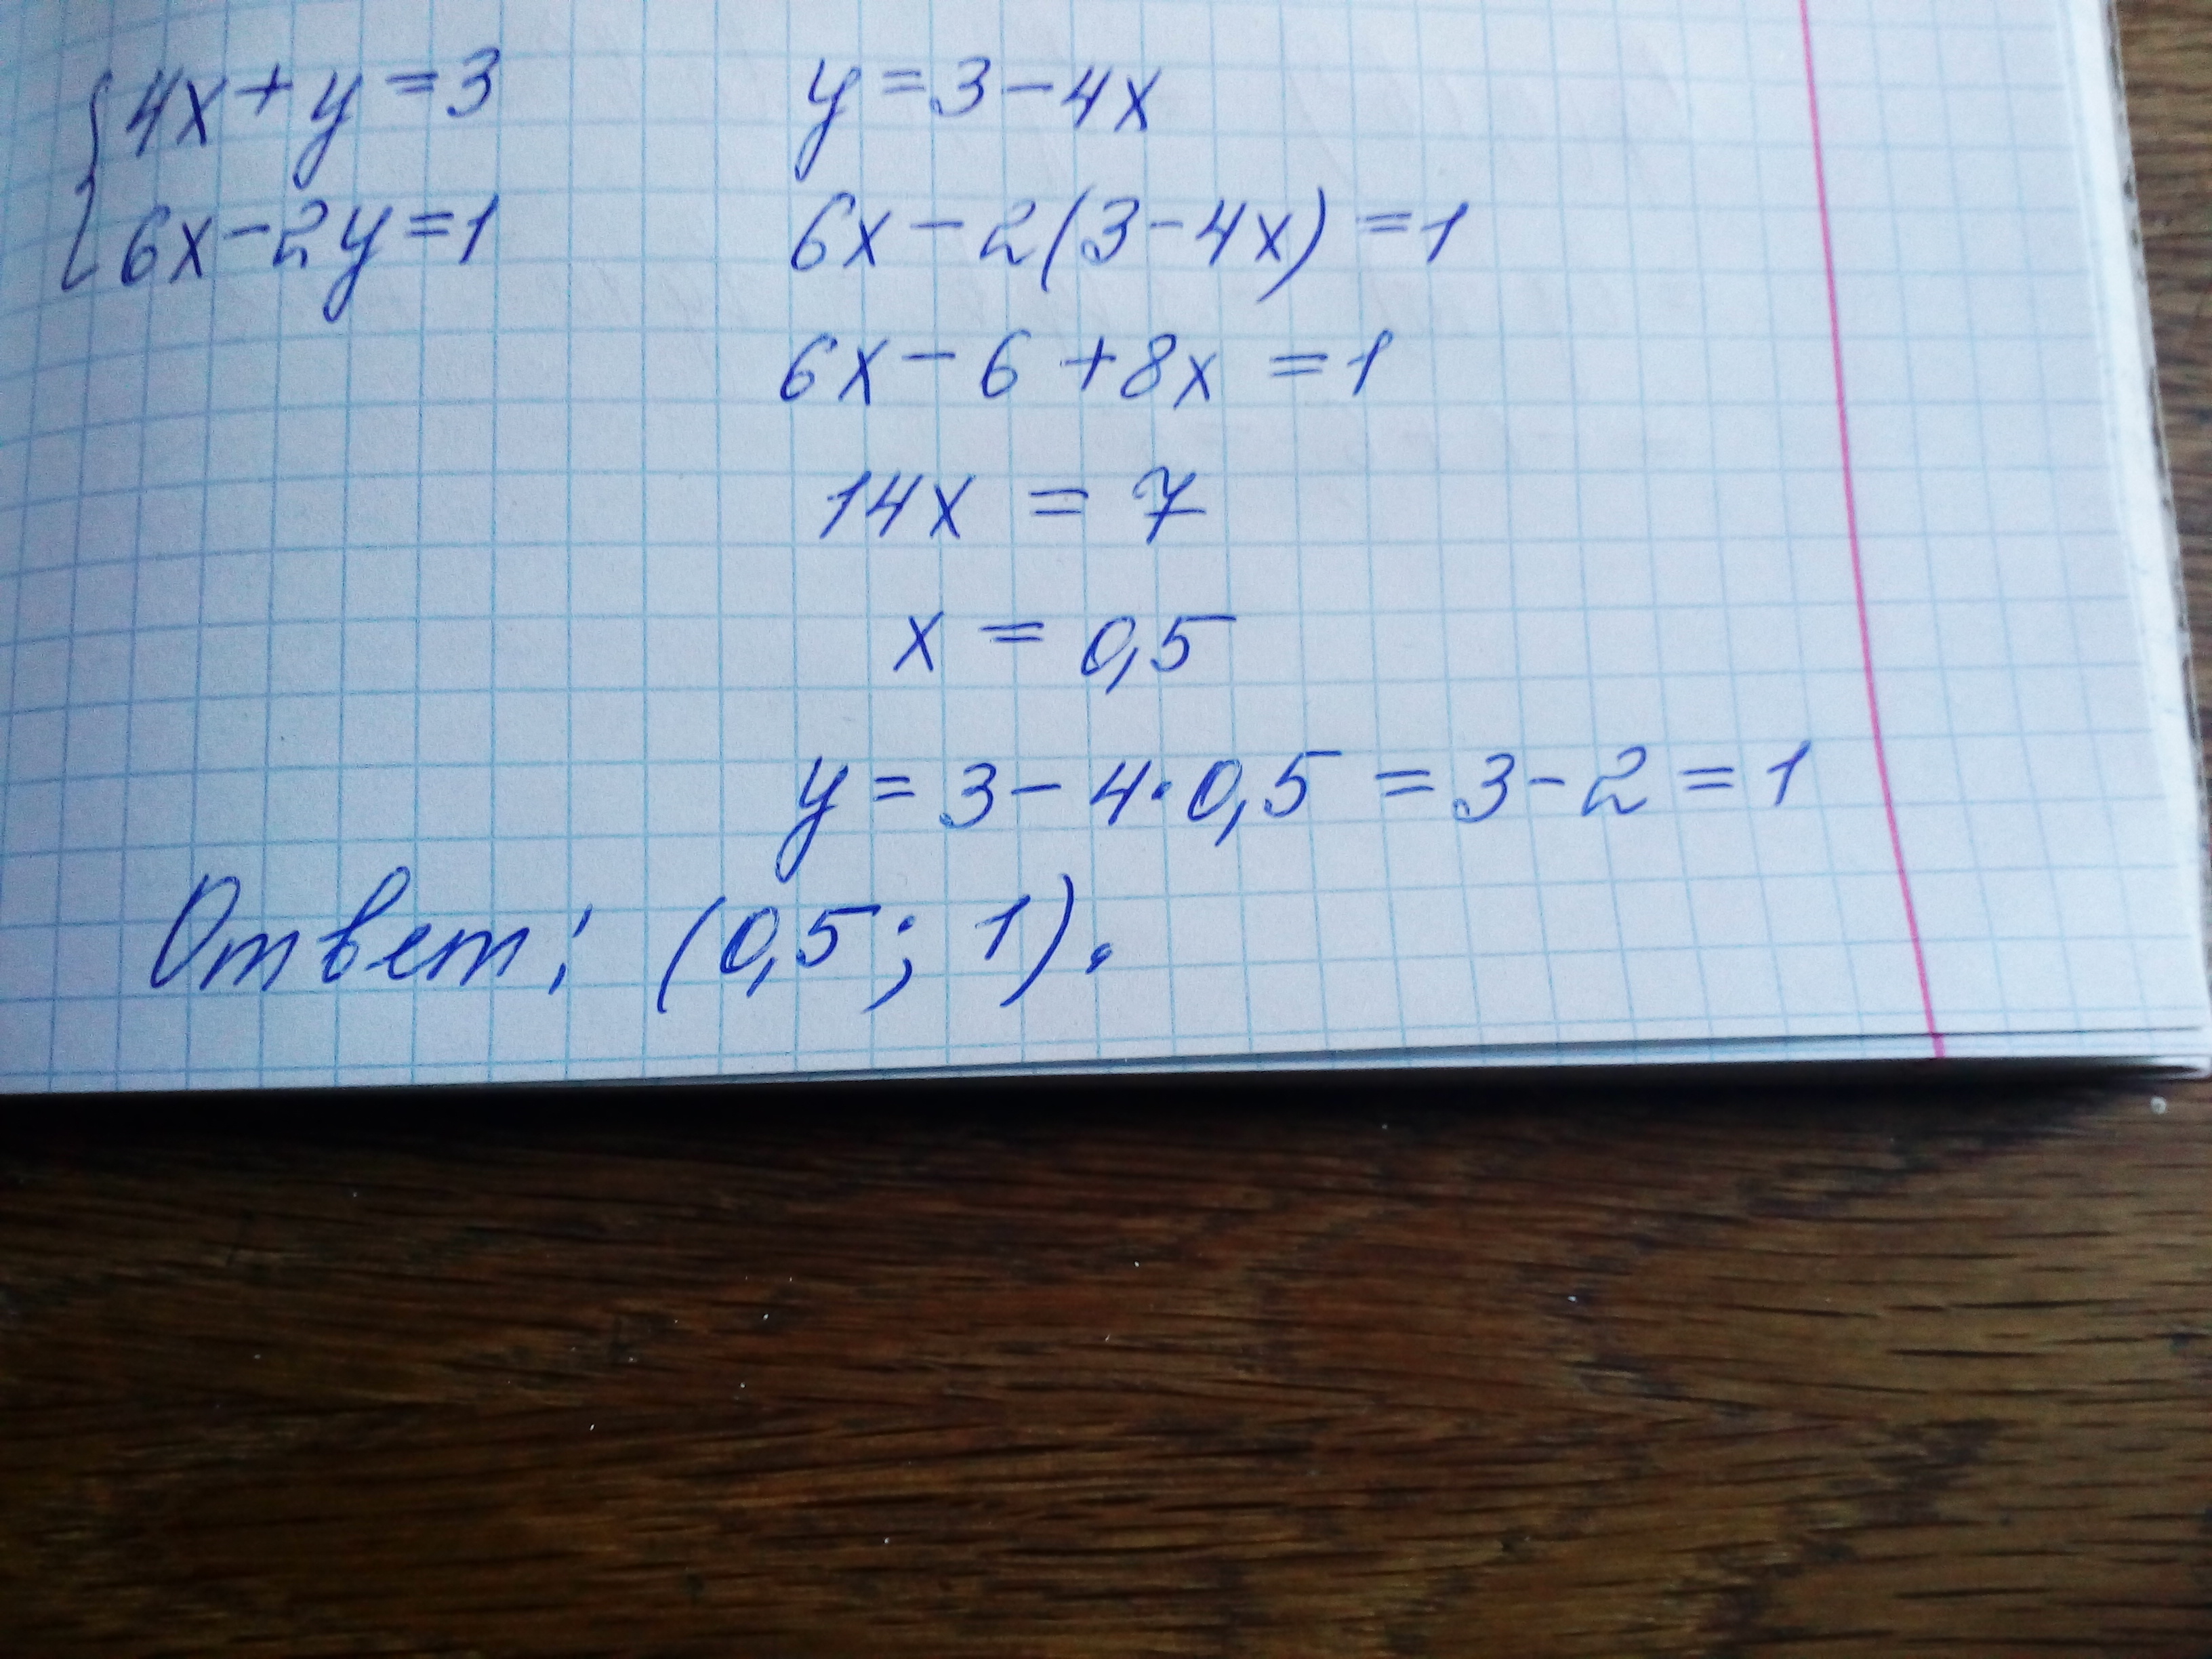 4x+y=3
6x-2y=1
y=3-4x
6x-2(3-4x)=1
6x-6+8x=1
14x=7
x=0,5
y=3-4·0,5=3-2=1
Ответ: (0,5; 1).